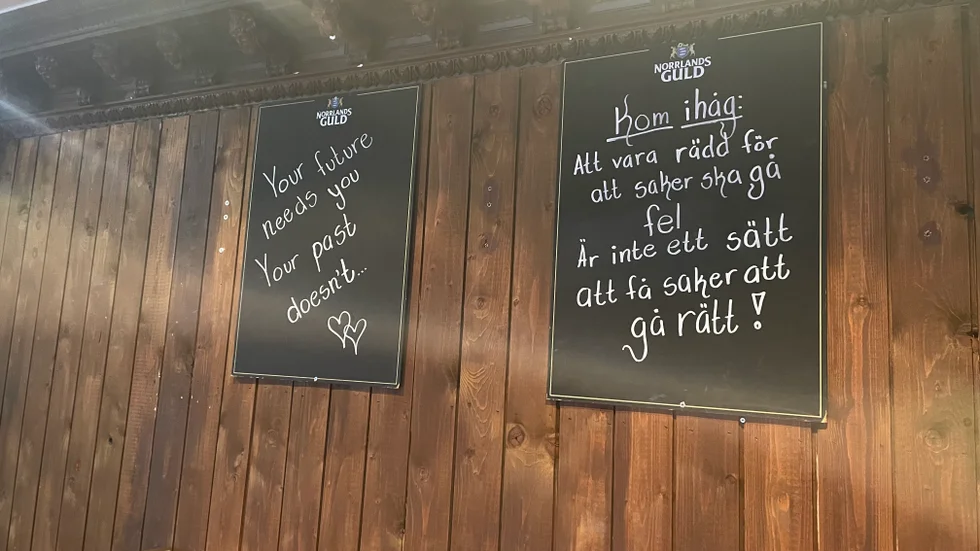 NORRLANDS
GULD
Your future
needs you
Your past
doesn't...
NORRLANDS
GULD
Kom ihåg:
Att vara rädd för
att saker ska gå
fel
Är inte ett sätt
att få saker att
gå rätt !